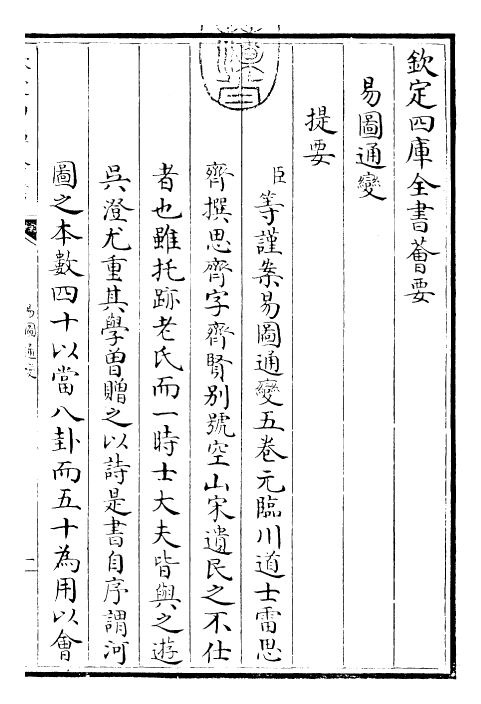 欽定四庫全書薈要
易圖通變
提要
臣等謹案易圖通變五卷元臨川道士雷思
齊撰思齊字齊賢别號空山宋遺民之不仕
者也雖托跡老氏而一時士大夫皆與之遊
吳澄尤重其學曾贈之以詩是書自序謂河
圖之本數四十以當八卦而五十為用以會
易圖通變
一